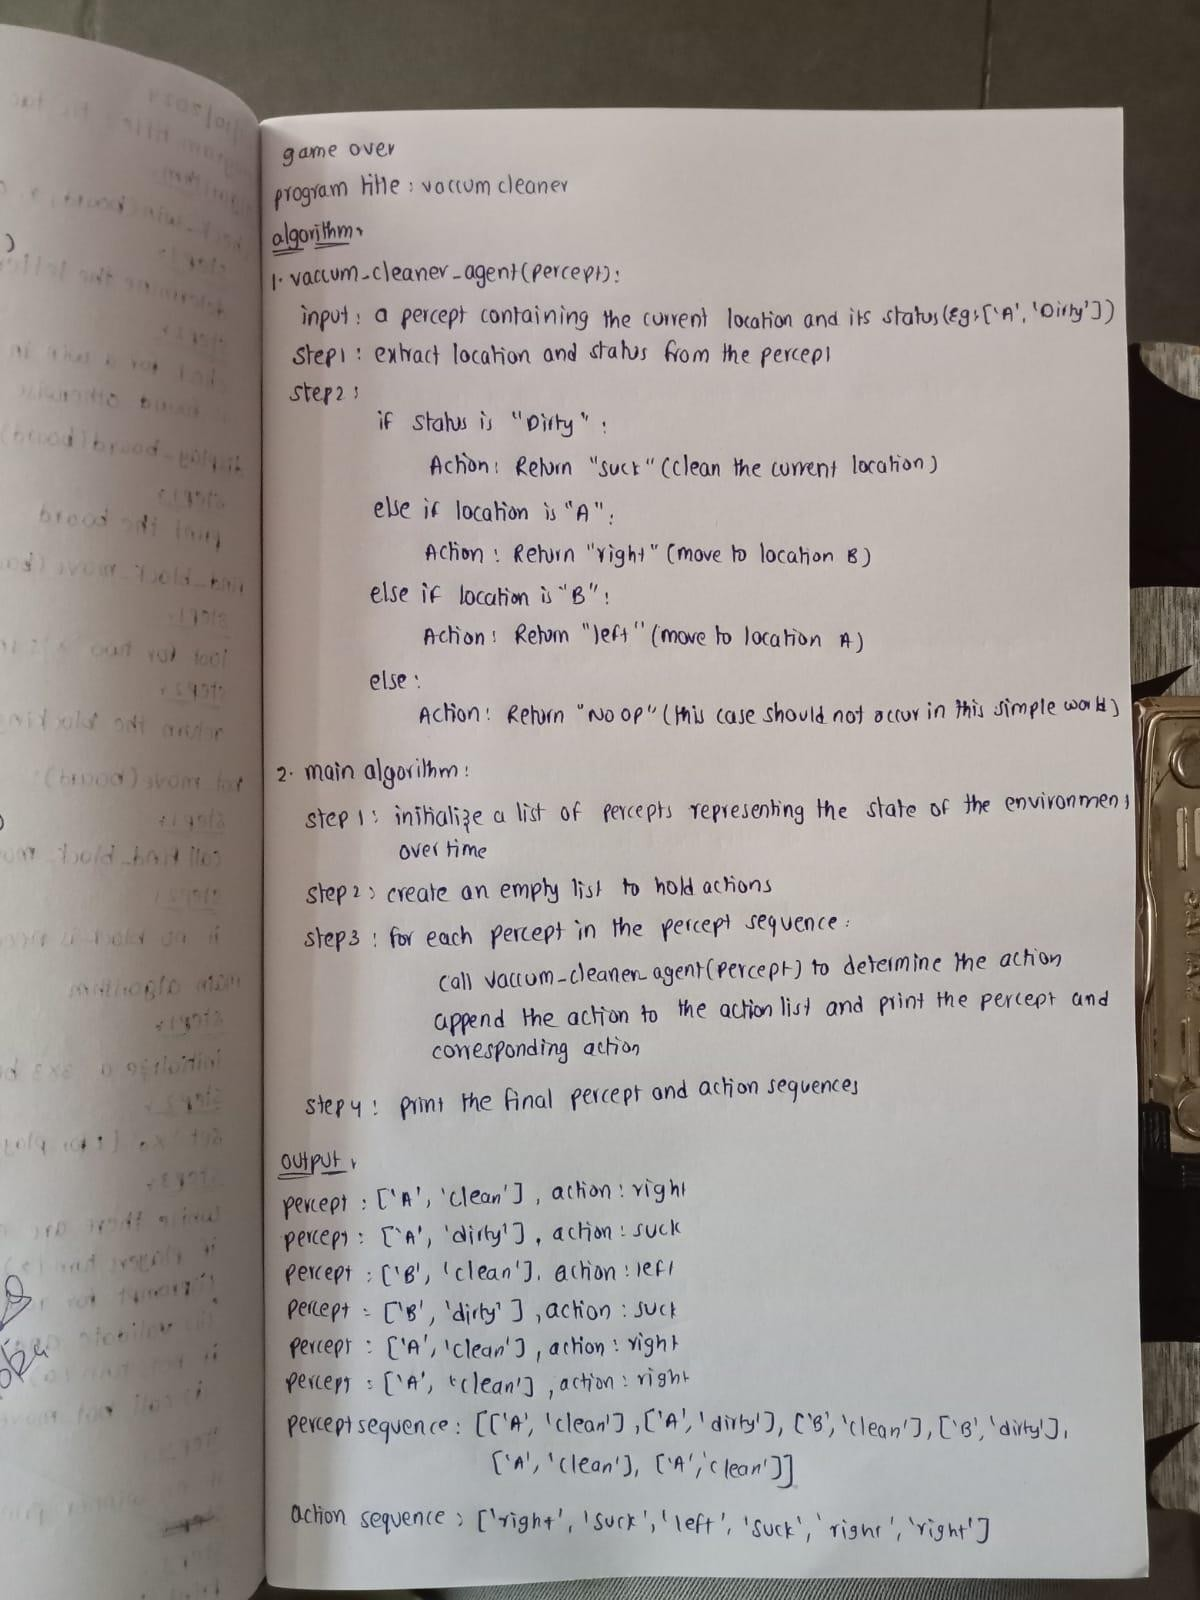 game over
program title : vaccum cleaner
algorithm:
1. vaccum_cleaner_agent(percept):
input: a percept containing the current location and its status (Eg: ['A', 'Dirty'])
step1 : extract location and status from the percept
step2 :
if status is "Dirty" :
Action: Return "suck" (clean the current location)
else if location is "A":
Action : Return "right" (move to location B)
else if location is "B" :
Action: Return "left" (move to location A)
else :
Action: Return "NO OP" (this case should not occur in this simple world)
2. main algorithm:
step 1 : initialize a list of percepts representing the state of the environment
over time
step 2 : create an empty list to hold actions
step 3 : for each percept in the percept sequence :
call vaccum_cleaner_agent(percept) to determine the action
append the action to the action list and print the percept and
corresponding action
step 4 : print the final percept and action sequences
output:
percept : ['A', 'clean'], action : right
percept : ['A', 'dirty'], action : suck
percept : ['B', 'clean'], action : left
percept : ['B', 'dirty'], action : suck
percept : ['A', 'clean'], action : right
percept : ['A', 'clean'], action : right
percept sequence : [['A', 'clean'], ['A', 'dirty'], ['B', 'clean'], ['B', 'dirty'],
['A', 'clean'], ['A', 'clean']]
action sequence : ['right', 'suck', 'left', 'suck', 'right', 'right']